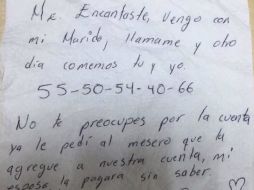 Me Encantaste, Vengo con
mi Marido, llamame y otro
dia comemos tu y yo.
55-50-54-40-66
No te preocupes por la cuenta
ya le pedí al mesero que la
agregue a nuestra cuenta, mi
esposo la pagara sin saber.